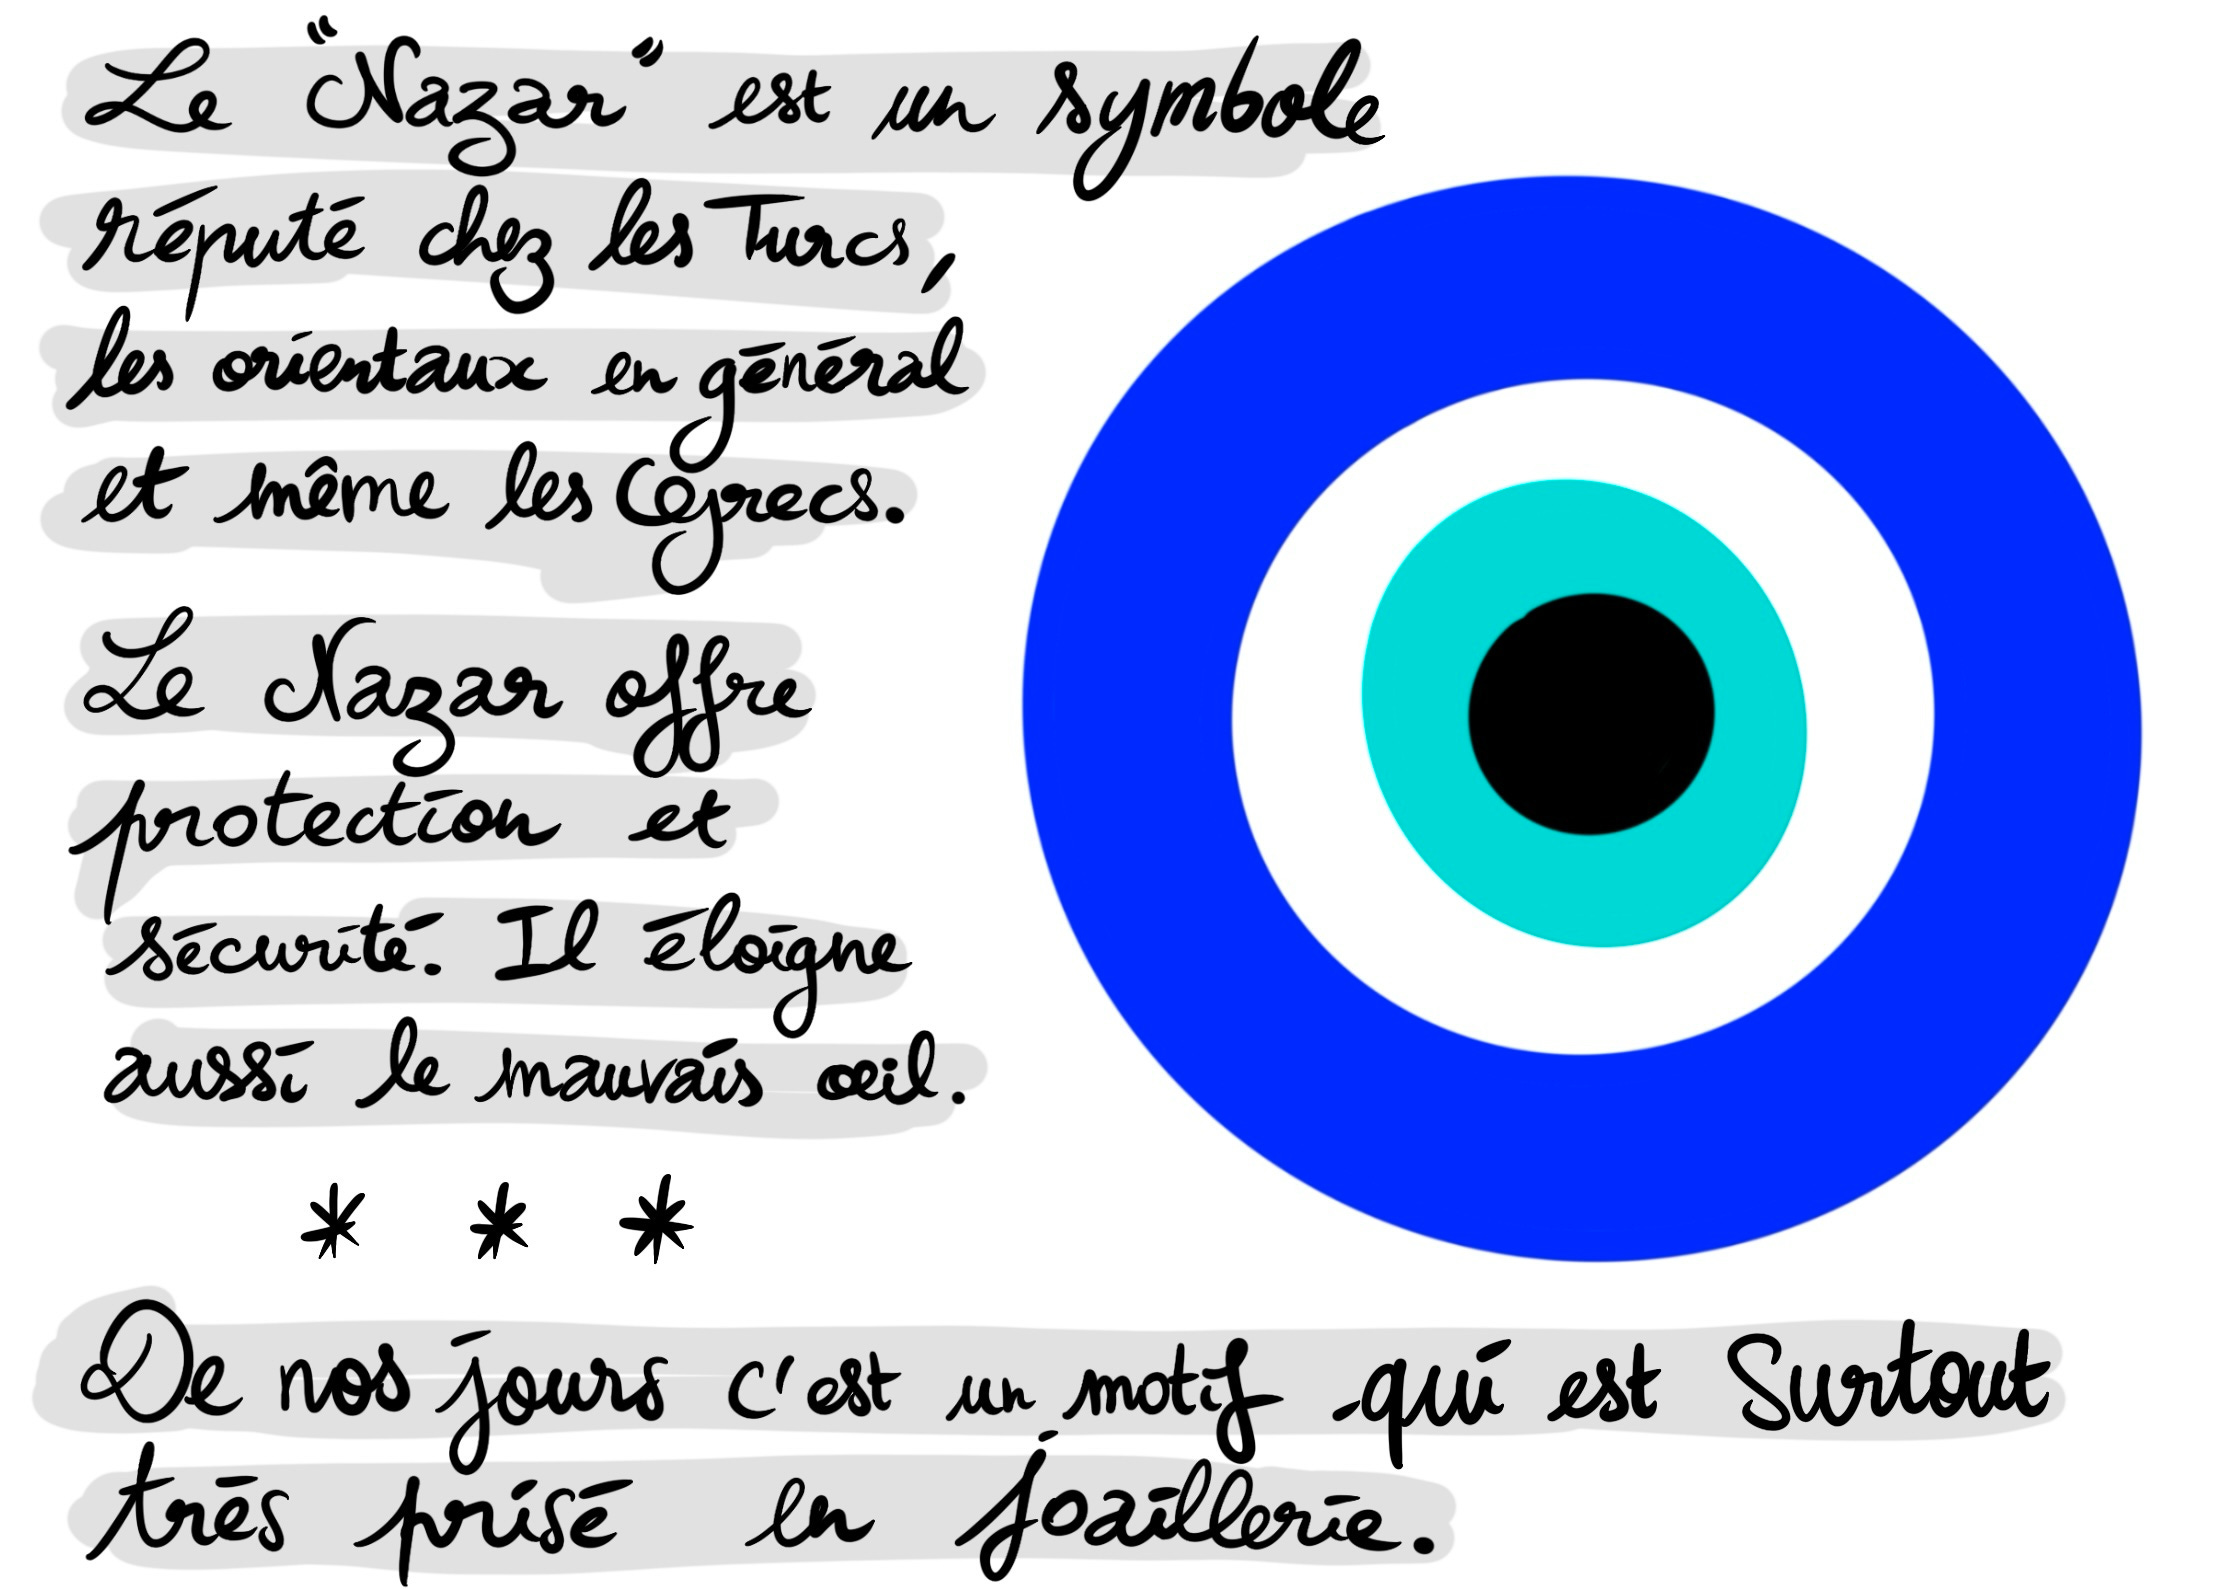 Le "Nazar" est un symbole
réputé chez les Turcs,
les orientaux en général
et même les Grecs.
Le Nazar offre
protection et
sécurité. Il éloigne
aussi le mauvais œil.
* * *
De nos jours c'est un motif qui est Surtout
très prisé en joaillerie.